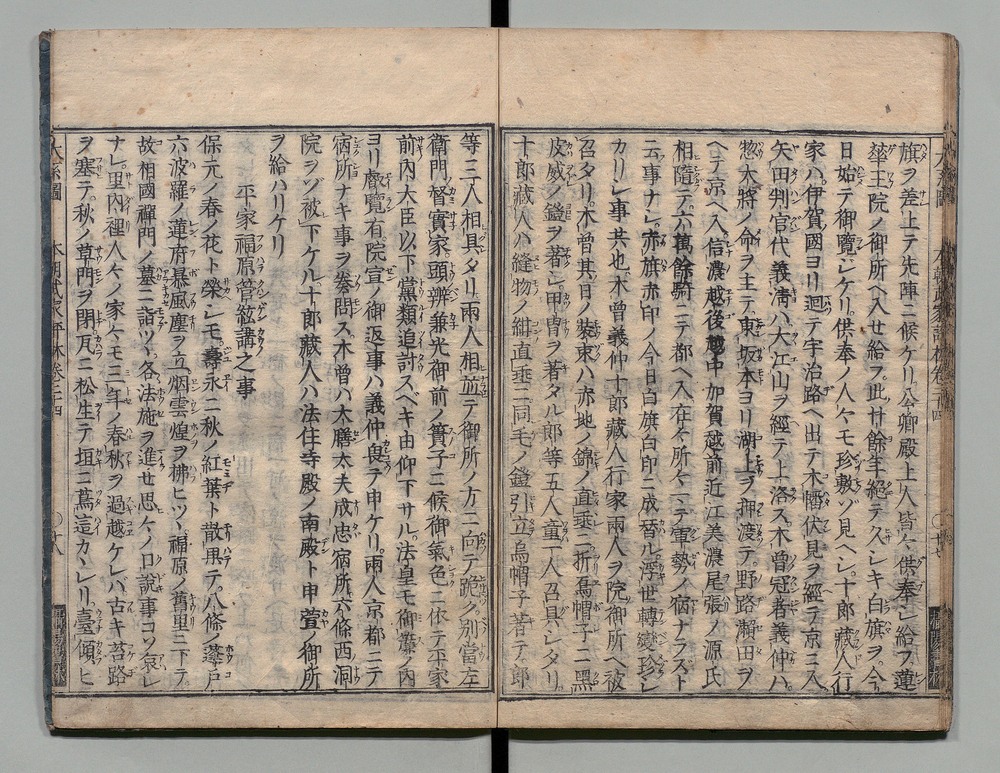 旗ヲ差上テ先陣ニ候ケリ公卿殿上人皆々供奉シ給フ蓮
華王院ノ御所ヘ入セ給フ此廿餘年絶テ久シキ白旗ヲ今
日始テ御覽シケリ供奉ノ人々モ珍敷ゾ見ヘシ十郎藏人行
家ハ伊賀國ヨリ廻テ宇治路ヘ出テ木幡伏見ヲ經テ京ニ入
矢田判官代義淸ハ大江山ヲ經テ上洛ス木曾冠者義仲ハ
惣大將ノ命ヲ主テ東坂本ヨリ湖上ヲ押渡テ野路瀬田ヲ
ヘテ京ヘ入信濃越後越中加賀越前近江美濃尾張ノ源氏
相隨テ六萬餘騎ニテ都ヘ入在々所々ニテ軍勢ノ宿ナラスト
云事ナシ赤旗赤印ノ今日白旗白印ニ成替ル浮世轉變珍シ
カリシ事共也木曾義仲十郎藏人行家兩人ヲ院御所ヘ被
召タリ木曾其日ノ裝束ハ赤地ノ錦ノ直垂ニ折烏帽子ニ黑
皮威ノ鎧ヲ著シ甲ヲ著タル郎等五人童一人召具シタリ
十郎藏人ハ縫物ノ紺直垂ニ同毛ノ鎧引立烏帽子著テ郎
等三人相具タリ兩人相並テ御所ノ方ニ向テ跪ク別當左
衛門ノ督實家頭辨兼光御前ノ簀子ニ候御氣色ニ依テ平家
前內大臣以下黨類追討スベキ由仰下サル法皇モ御簾ノ內
ヨリ睿覽有院宣ノ御返事ハ義仲畏テ申ケリ兩人京都ニテ
宿所ナキ事ヲ奏問ス木曾ハ大膳太夫成忠宿所六條西洞
院ヲゾ被下ケル十郎藏人ハ法住寺殿ノ南殿ト申萱ノ御所
ヲ給ハリケリ
平家福原管絃講之事
保元ノ春ノ花ト榮シモ壽永ニ秋ノ紅葉ト散果テ八條ノ蓬戶
六波羅ノ蓮府暴風塵ヲ立烟雲煌ヲ拂ヒツヽ福原ノ舊里ニ下テ
故相國禪門ノ墓ニ詣ツヽ各法施ヲ進セ思々ノ口說事コソ哀レ
ナレ里內裡人々ノ家々モ三年ノ春秋ヲ過越ケレバ古キ苔路
ヲ塞テ秋ノ草門ヲ閉瓦ニ松生テ垣ニ蔦這カヽレリ臺傾ヒ